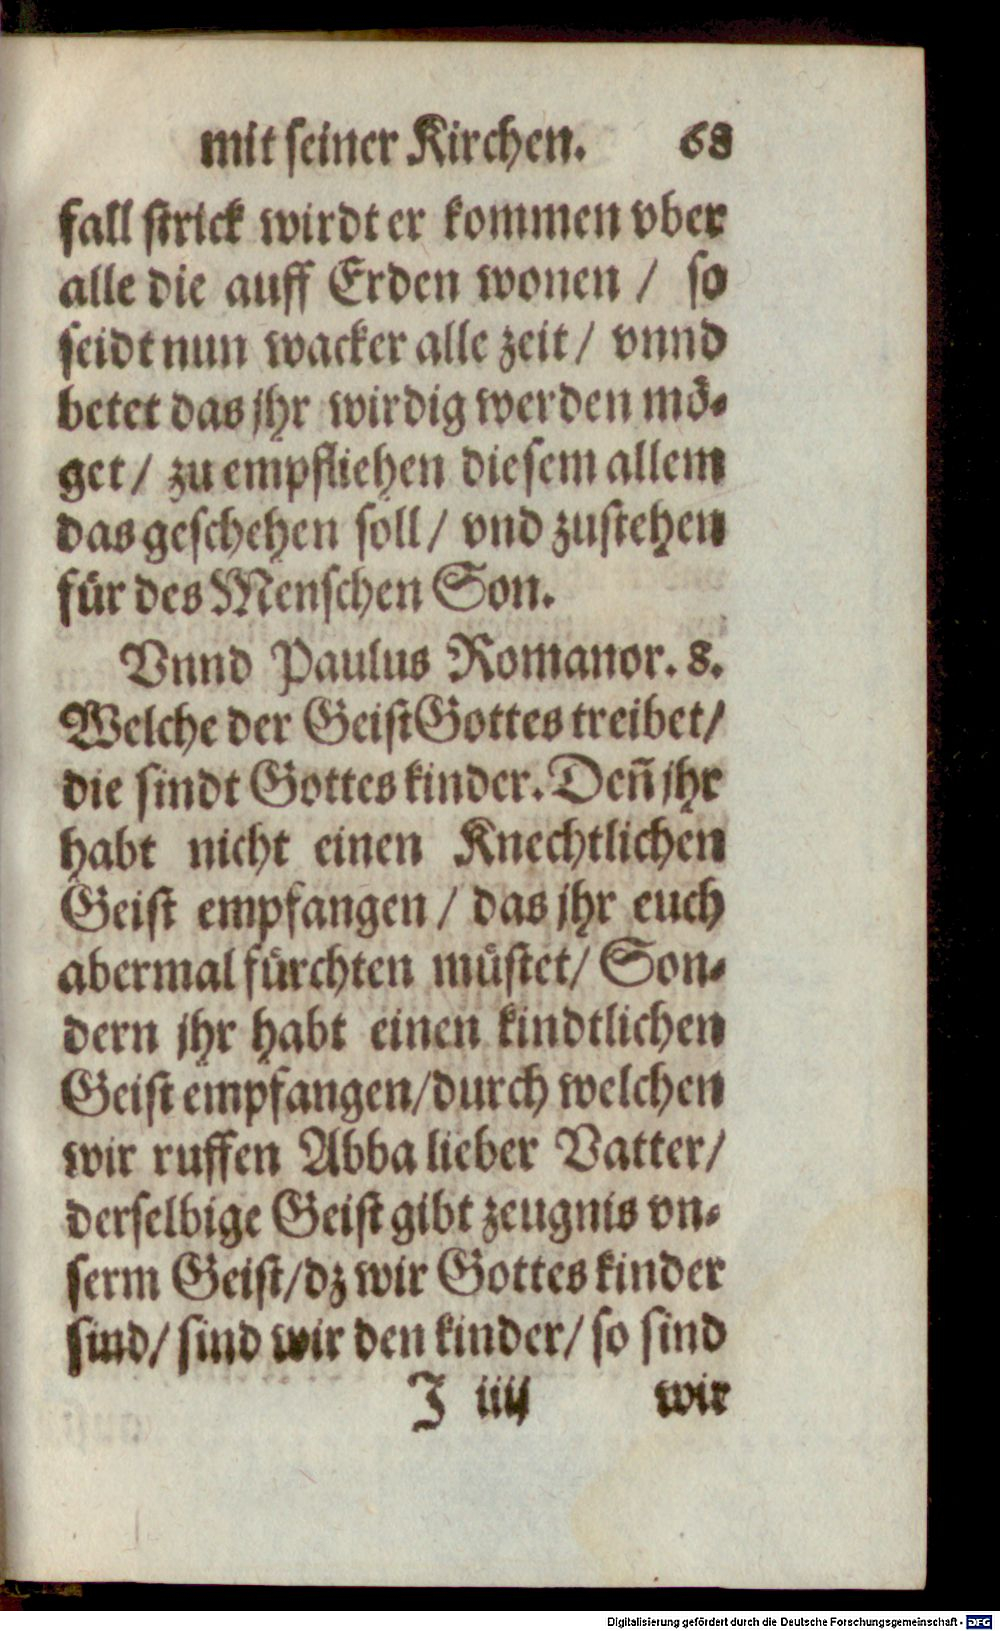 mit seiner Kirchen. 68
fall strick wirdt er kommen vber
alle die auff Erden wonen / so
seidt nun wacker alle zeit / vnnd
betet das jhr wirdig werden mö-
get / zu empfliehen diesem allem
das geschehen soll / vnd zustehen
für des Menschen Son.
Vnnd Paulus Romanor. 8.
Welche der Geist Gottes treibet /
die sindt Gottes kinder. Deñ jhr
habt nicht einen Knechtlichen
Geist empfangen / das jhr euch
abermal fürchten müstet / Son-
dern jhr habt einen kindtlichen
Geist empfangen / durch welchen
wir ruffen Abba lieber Vatter /
derselbige Geist gibt zeugnis vn-
serm Geist / dz wir Gottes kinder
sind / sind wir den kinder / so sind
J iiij wir
Digitalisierung gefördert durch die Deutsche Forschungsgemeinschaft - DFG